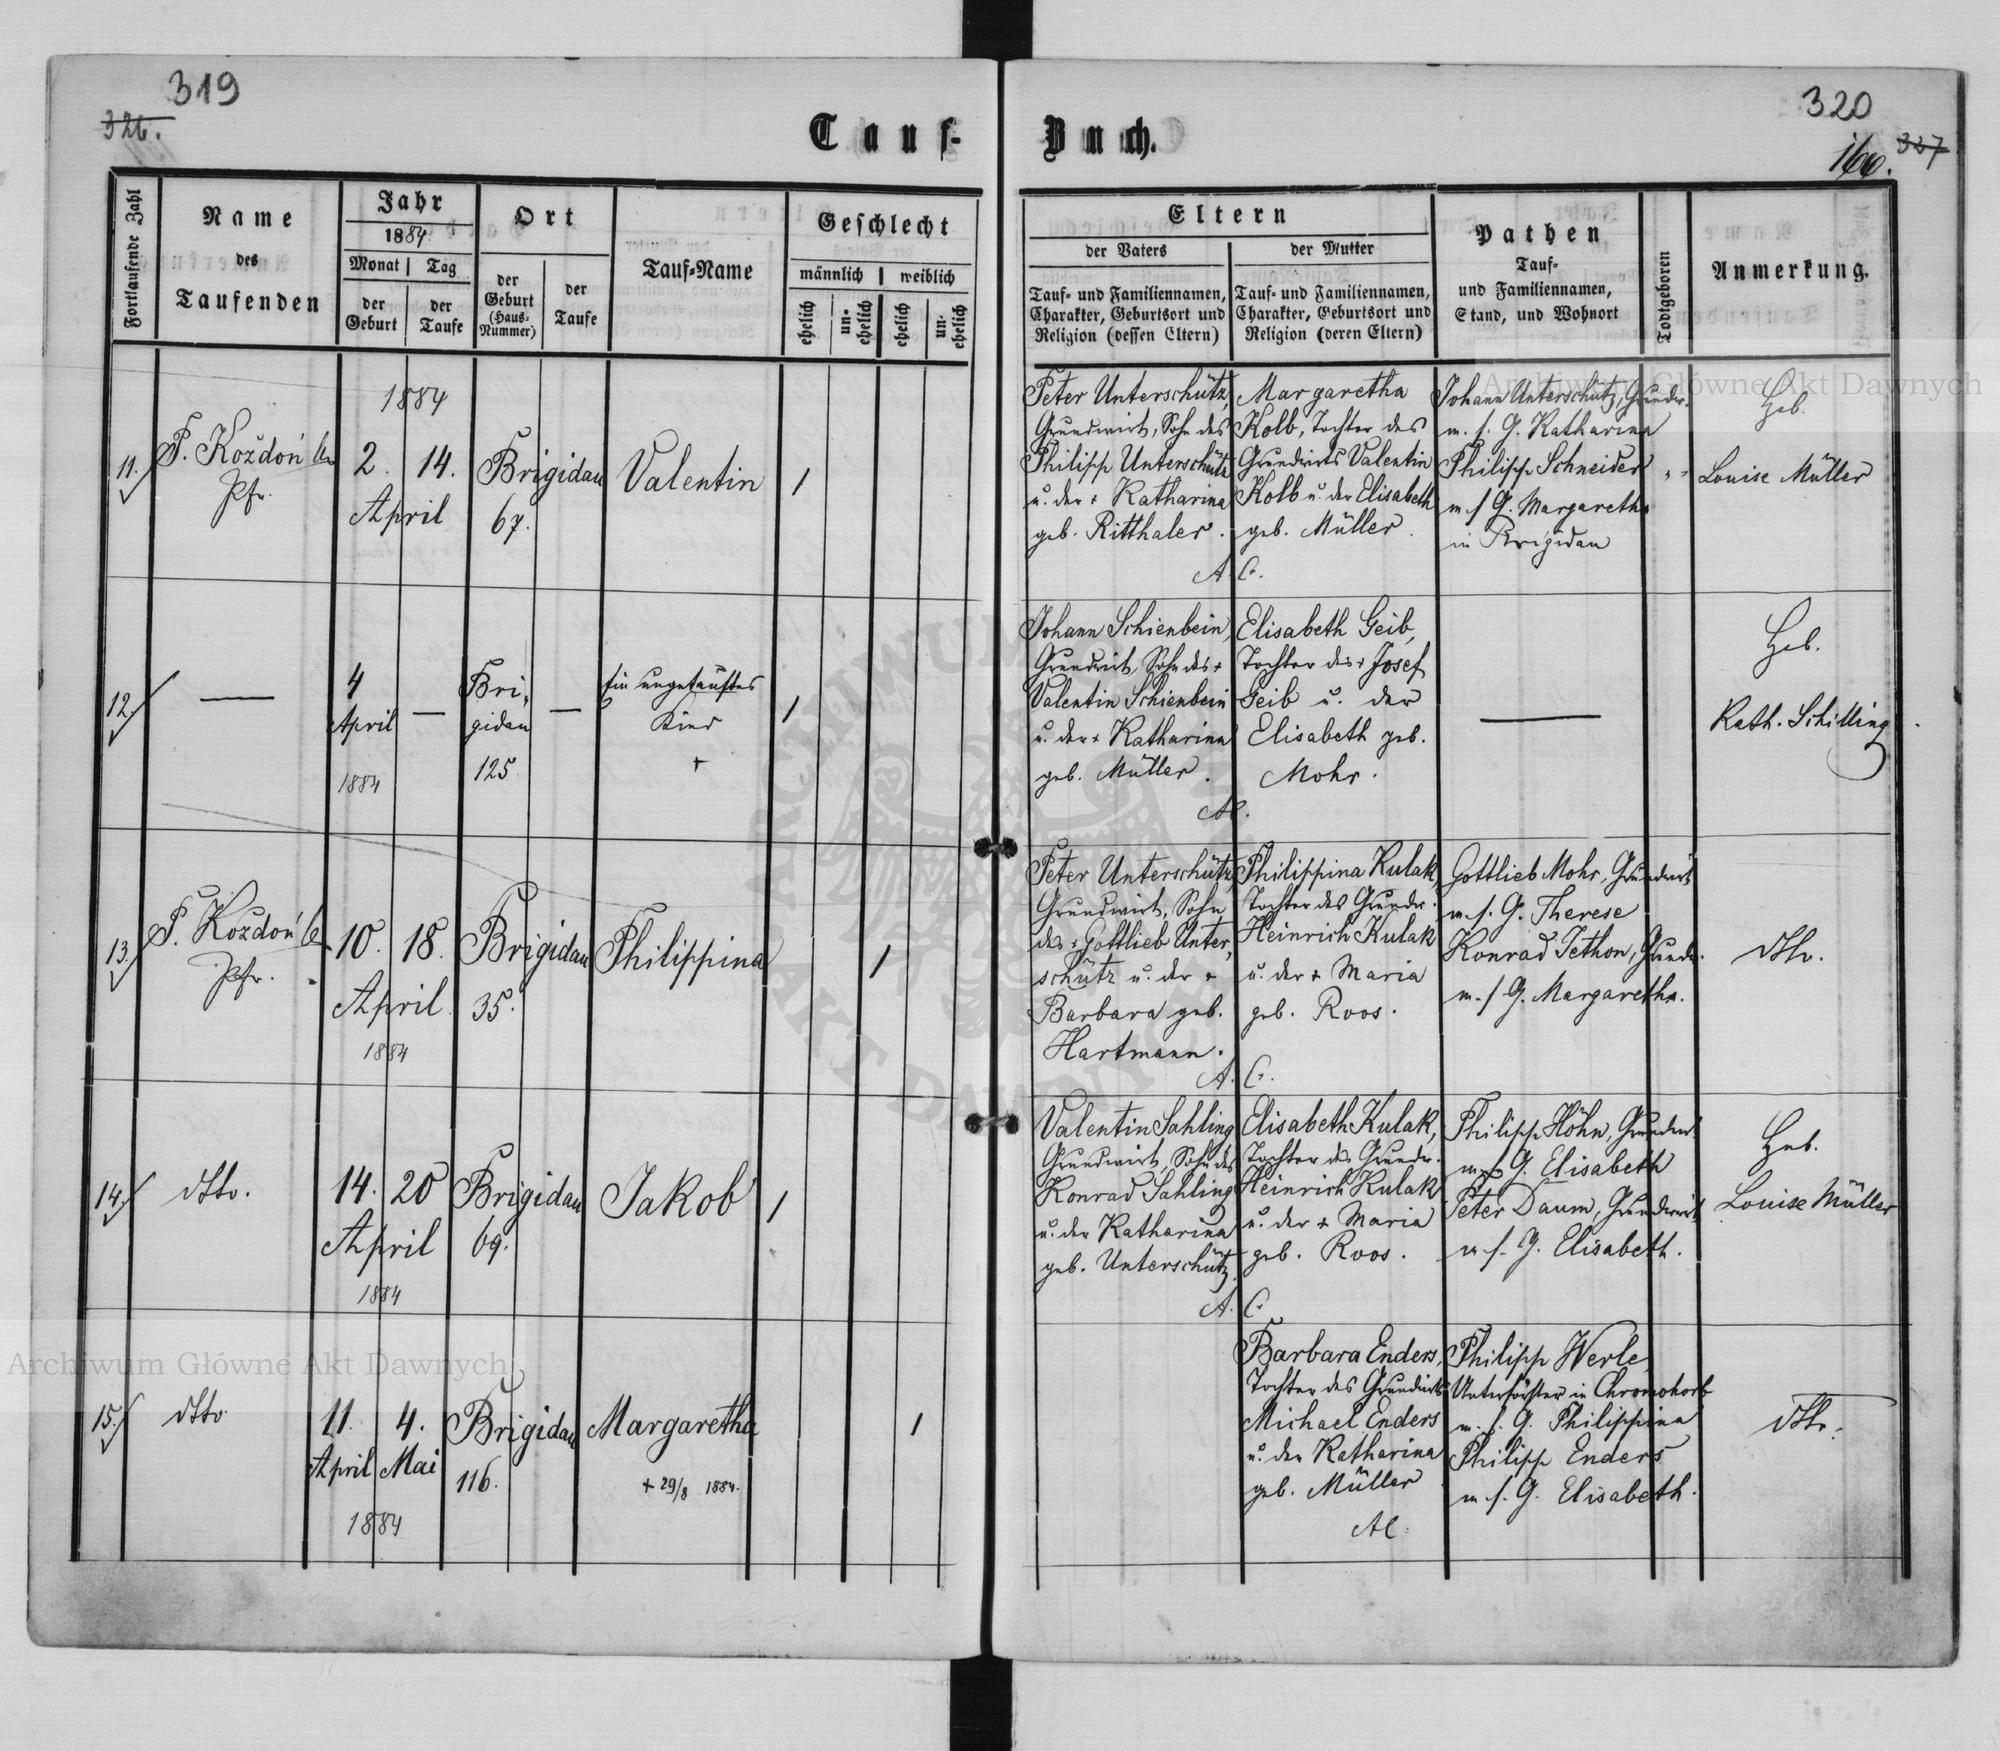 319
326.
320
327
160.
Tauf-Buch.
Fortlaufende Zahl
Name
des
Taufenden
Jahr
1884
Monat
Tag
der
Geburt
der
Taufe
Ort
der
Geburt
(Haus-
Nummer)
der
Taufe
Tauf-Name
Geschlecht
männlich
weiblich
ehelich
un-
ehelich
ehelich
un-
ehelich
Eltern
der Vaters
der Mutter
Tauf- und Familiennamen,
Charakter, Geburtsort und
Religion (dessen Eltern)
Tauf- und Familiennamen,
Charakter, Geburtsort und
Religion (deren Eltern)
Pathen
Tauf-
und Familiennamen,
Stand, und Wohnort
Todtgeboren
Anmerkung.
11.
J. Koždoń
Pfr.
1884
2. 14.
April
Brigidau
67.
Valentin
1
Peter Unterschütz,
Grundwirt, Sohn des
Philipp Unterschütz
u. der + Katharina
geb. Ritthaler.
Margaretha
Kolb, Tochter des
Grundwirts Valentin
Kolb u. der Elisabeth
geb. Müller.
A. C.
Johann Unterschütz, Grundw.
m. s. G. Katharina
Philipp Schneider
m. s. G. Margaretha
in Brigidau
Heb.
Louise Müller
12.
—
4
April
1884
—
Bri-
gidau
125.
—
Ein ungetauftes
Kind
+
1
Johann Schienbein,
Grundwirt, Sohn des +
Valentin Schienbein
u. der + Katharina
geb. Müller.
Elisabeth Geib,
Tochter des + Josef
Geib u. der
Elisabeth geb.
Mohr.
AC.
—
Heb.
Kath. Schilling.
13.
J. Koždoń
Pfr.
10. 18.
April
1884
Brigidau
35.
Philippina
1
Peter Unterschütz,
Grundwirt, Sohn
des + Gottlieb Unter-
schütz u. der +
Barbara geb.
Hartmann.
Philippina Kulak,
Tochter des Grundw.
Heinrich Kulak
u. der + Maria
geb. Roos.
A. C.
Gottlieb Mohr, Grundwirt
m. s. G. Therese
Konrad Jethon, Grundw.
m. s. G. Margaretha.
dtto.
14.
dtto.
14. 20
April
1884
Brigidau
69.
Jakob
1
Valentin Sahling
Grundwirt, Sohn des
Konrad Sahling
u. der Katharina
geb. Unterschütz.
Elisabeth Kulak,
Tochter des Grundw.
Heinrich Kulak
u. der + Maria
geb. Roos.
A. C.
Philipp Höhn, Grundw.
m. s. G. Elisabeth
Peter Daum, Grundwirt,
m. s. G. Elisabeth.
Heb.
Louise Müller
15.
dtto.
11. 4.
April Mai
1884
Brigidau
116.
Margaretha
+ 29/8 1884.
1
Barbara Enders,
Tochter des Grundwirts
Michael Enders
u. der Katharina
geb. Müller
AC.
Philipp Werle,
Unterförster in Chromohorb
m. s. G. Philippina
Philipp Enders
m. s. G. Elisabeth.
dtto.
Archiwum Główne Akt Dawnych
Archiwum Główne Akt Dawnych